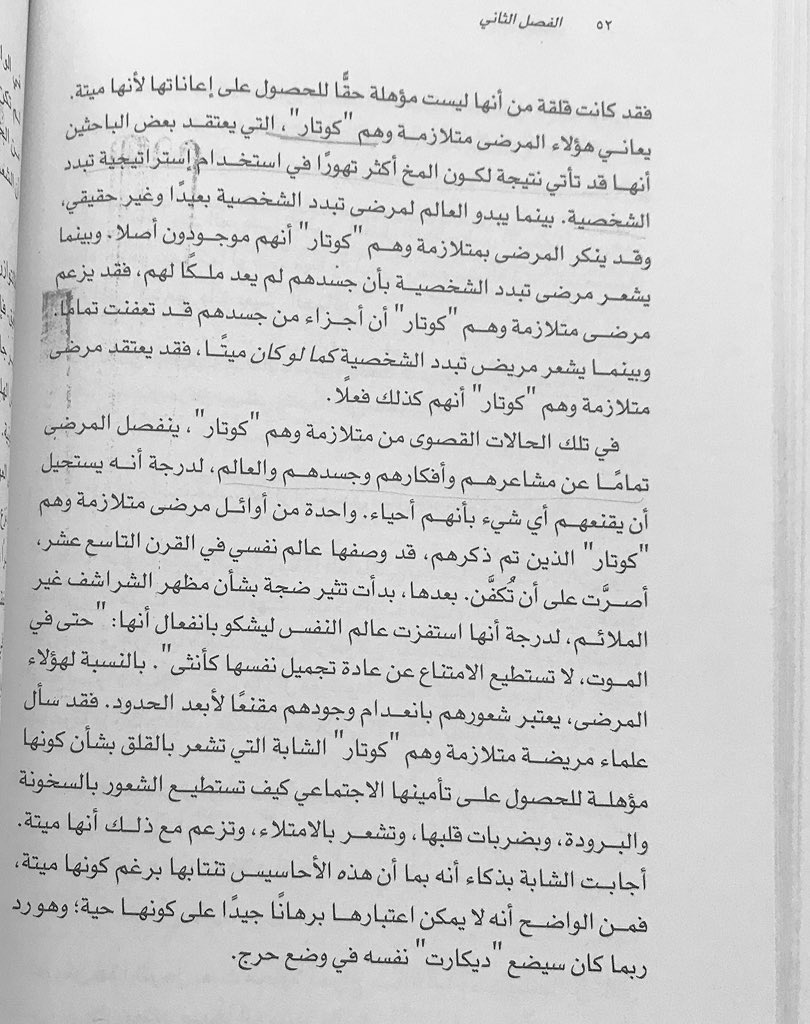 ٥٢ الفصل الثاني
فقد كانت قلقة من أنها ليست مؤهلة حقًّا للحصول على إعاناتها لأنها ميتة.
يعاني هؤلاء المرضى متلازمة وهم "كوتار"، التي يعتقد بعض الباحثين
أنها قد تأتي نتيجة لكون المخ أكثر تهورًا في استخدام إستراتيجية تبدد
الشخصية. بينما يبدو العالم لمرضى تبدد الشخصية بعيدًا وغير حقيقي،
وقد ينكر المرضى بمتلازمة وهم "كوتار" أنهم موجودون أصلا. وبينما
يشعر مرضى تبدد الشخصية بأن جسدهم لم يعد ملكًا لهم، فقد يزعم
مرضى متلازمة وهم "كوتار" أن أجزاء من جسدهم قد تعفنت تمامًا.
وبينما يشعر مريض تبدد الشخصية كما لو كان ميتًا، فقد يعتقد مرضى
متلازمة وهم "كوتار" أنهم كذلك فعلًا.
في تلك الحالات القصوى من متلازمة وهم "كوتار"، ينفصل المرضى
تمامًا عن مشاعرهم وأفكارهم وجسدهم والعالم، لدرجة أنه يستحيل
أن يقنعهم أي شيء بأنهم أحياء. واحدة من أوائل مرضى متلازمة وهم
"كوتار" الذين تم ذكرهم، قد وصفها عالم نفسي في القرن التاسع عشر،
أصرَّت على أن تُكفَّن. بعدها، بدأت تثير ضجة بشأن مظهر الشراشف غير
الملائم، لدرجة أنها استفزت عالم النفس ليشكو بانفعال أنها: "حتى في
الموت، لا تستطيع الامتناع عن عادة تجميل نفسها كأنثى". بالنسبة لهؤلاء
المرضى، يعتبر شعورهم بانعدام وجودهم مقنعًا لأبعد الحدود. فقد سأل
علماء مريضة متلازمة وهم "كوتار" الشابة التي تشعر بالقلق بشأن كونها
مؤهلة للحصول على تأمينها الاجتماعي كيف تستطيع الشعور بالسخونة
والبرودة، وبضربات قلبها، وتشعر بالامتلاء، وتزعم مع ذلك أنها ميتة.
أجابت الشابة بذكاء أنه بما أن هذه الأحاسيس تنتابها برغم كونها ميتة،
فمن الواضح أنه لا يمكن اعتبارها برهانًا جيدًا على كونها حية؛ وهو رد
ربما كان سيضع "ديكارت" نفسه في وضع حرج.